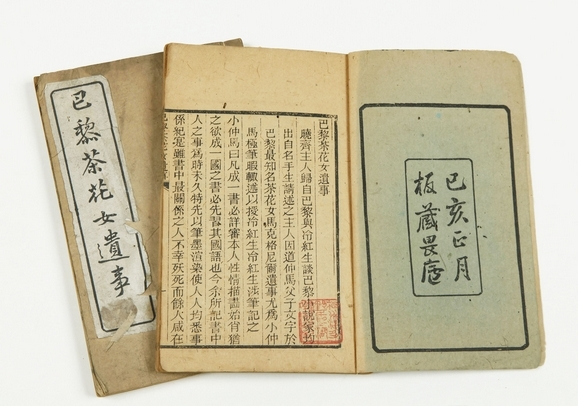 巴黎茶花女遺事
己亥正月
板藏畏廬
巴黎茶花女遺事
曉齋主人歸自巴黎與冷紅生談巴黎小說家均
出自名手生請述之主人因道仲馬父子文字於
巴黎最知名茶花女馬克格尼爾遺事尤爲小仲
馬極筆暇輒述以授冷紅生冷紅生涉筆記之
小仲馬曰凡成一書必詳審本人性情描畫始肖猶
之欲成一國之書必先習其國語也今余所記書中
人之事爲時未久特先以筆墨渲染使人人均悉事
係紀實雖書中最關係之人不幸殀死而餘人咸在